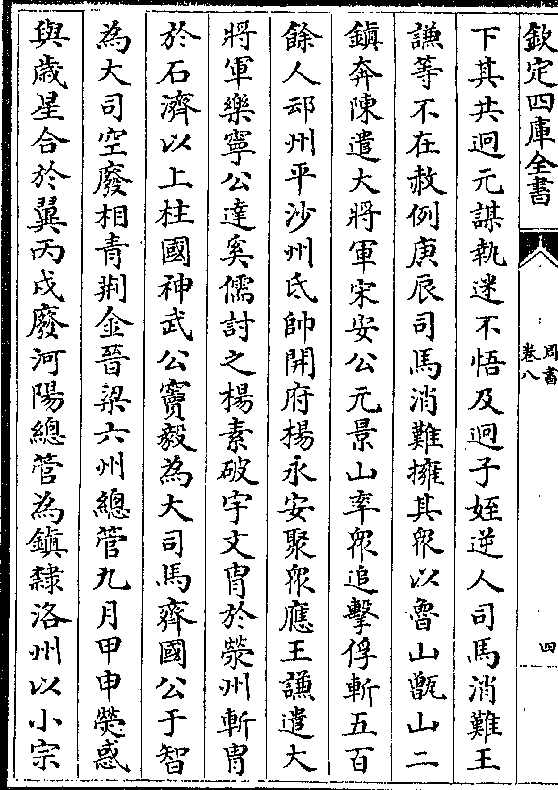 欽定四庫全書
周書
卷八
四
下其共迥元謀執迷不悟及迥子姪逆人司馬消難王
謙等不在赦例庚辰司馬消難擁其衆以魯山甑山二
鎭奔陳遣大將軍宋安公元景山率衆追擊俘斬五百
餘人䢵州平沙州氐帥開府楊永安聚衆應王謙遣大
將軍樂寧公達奚儒討之楊素破宇文胄於滎州斬胄
於石濟以上柱國神武公竇毅為大司馬齊國公于智
為大司空廢相青荆金晉梁六州總管九月甲申熒惑
與歲星合於翼丙戌廢河陽總管為鎭隸洛州以小宗